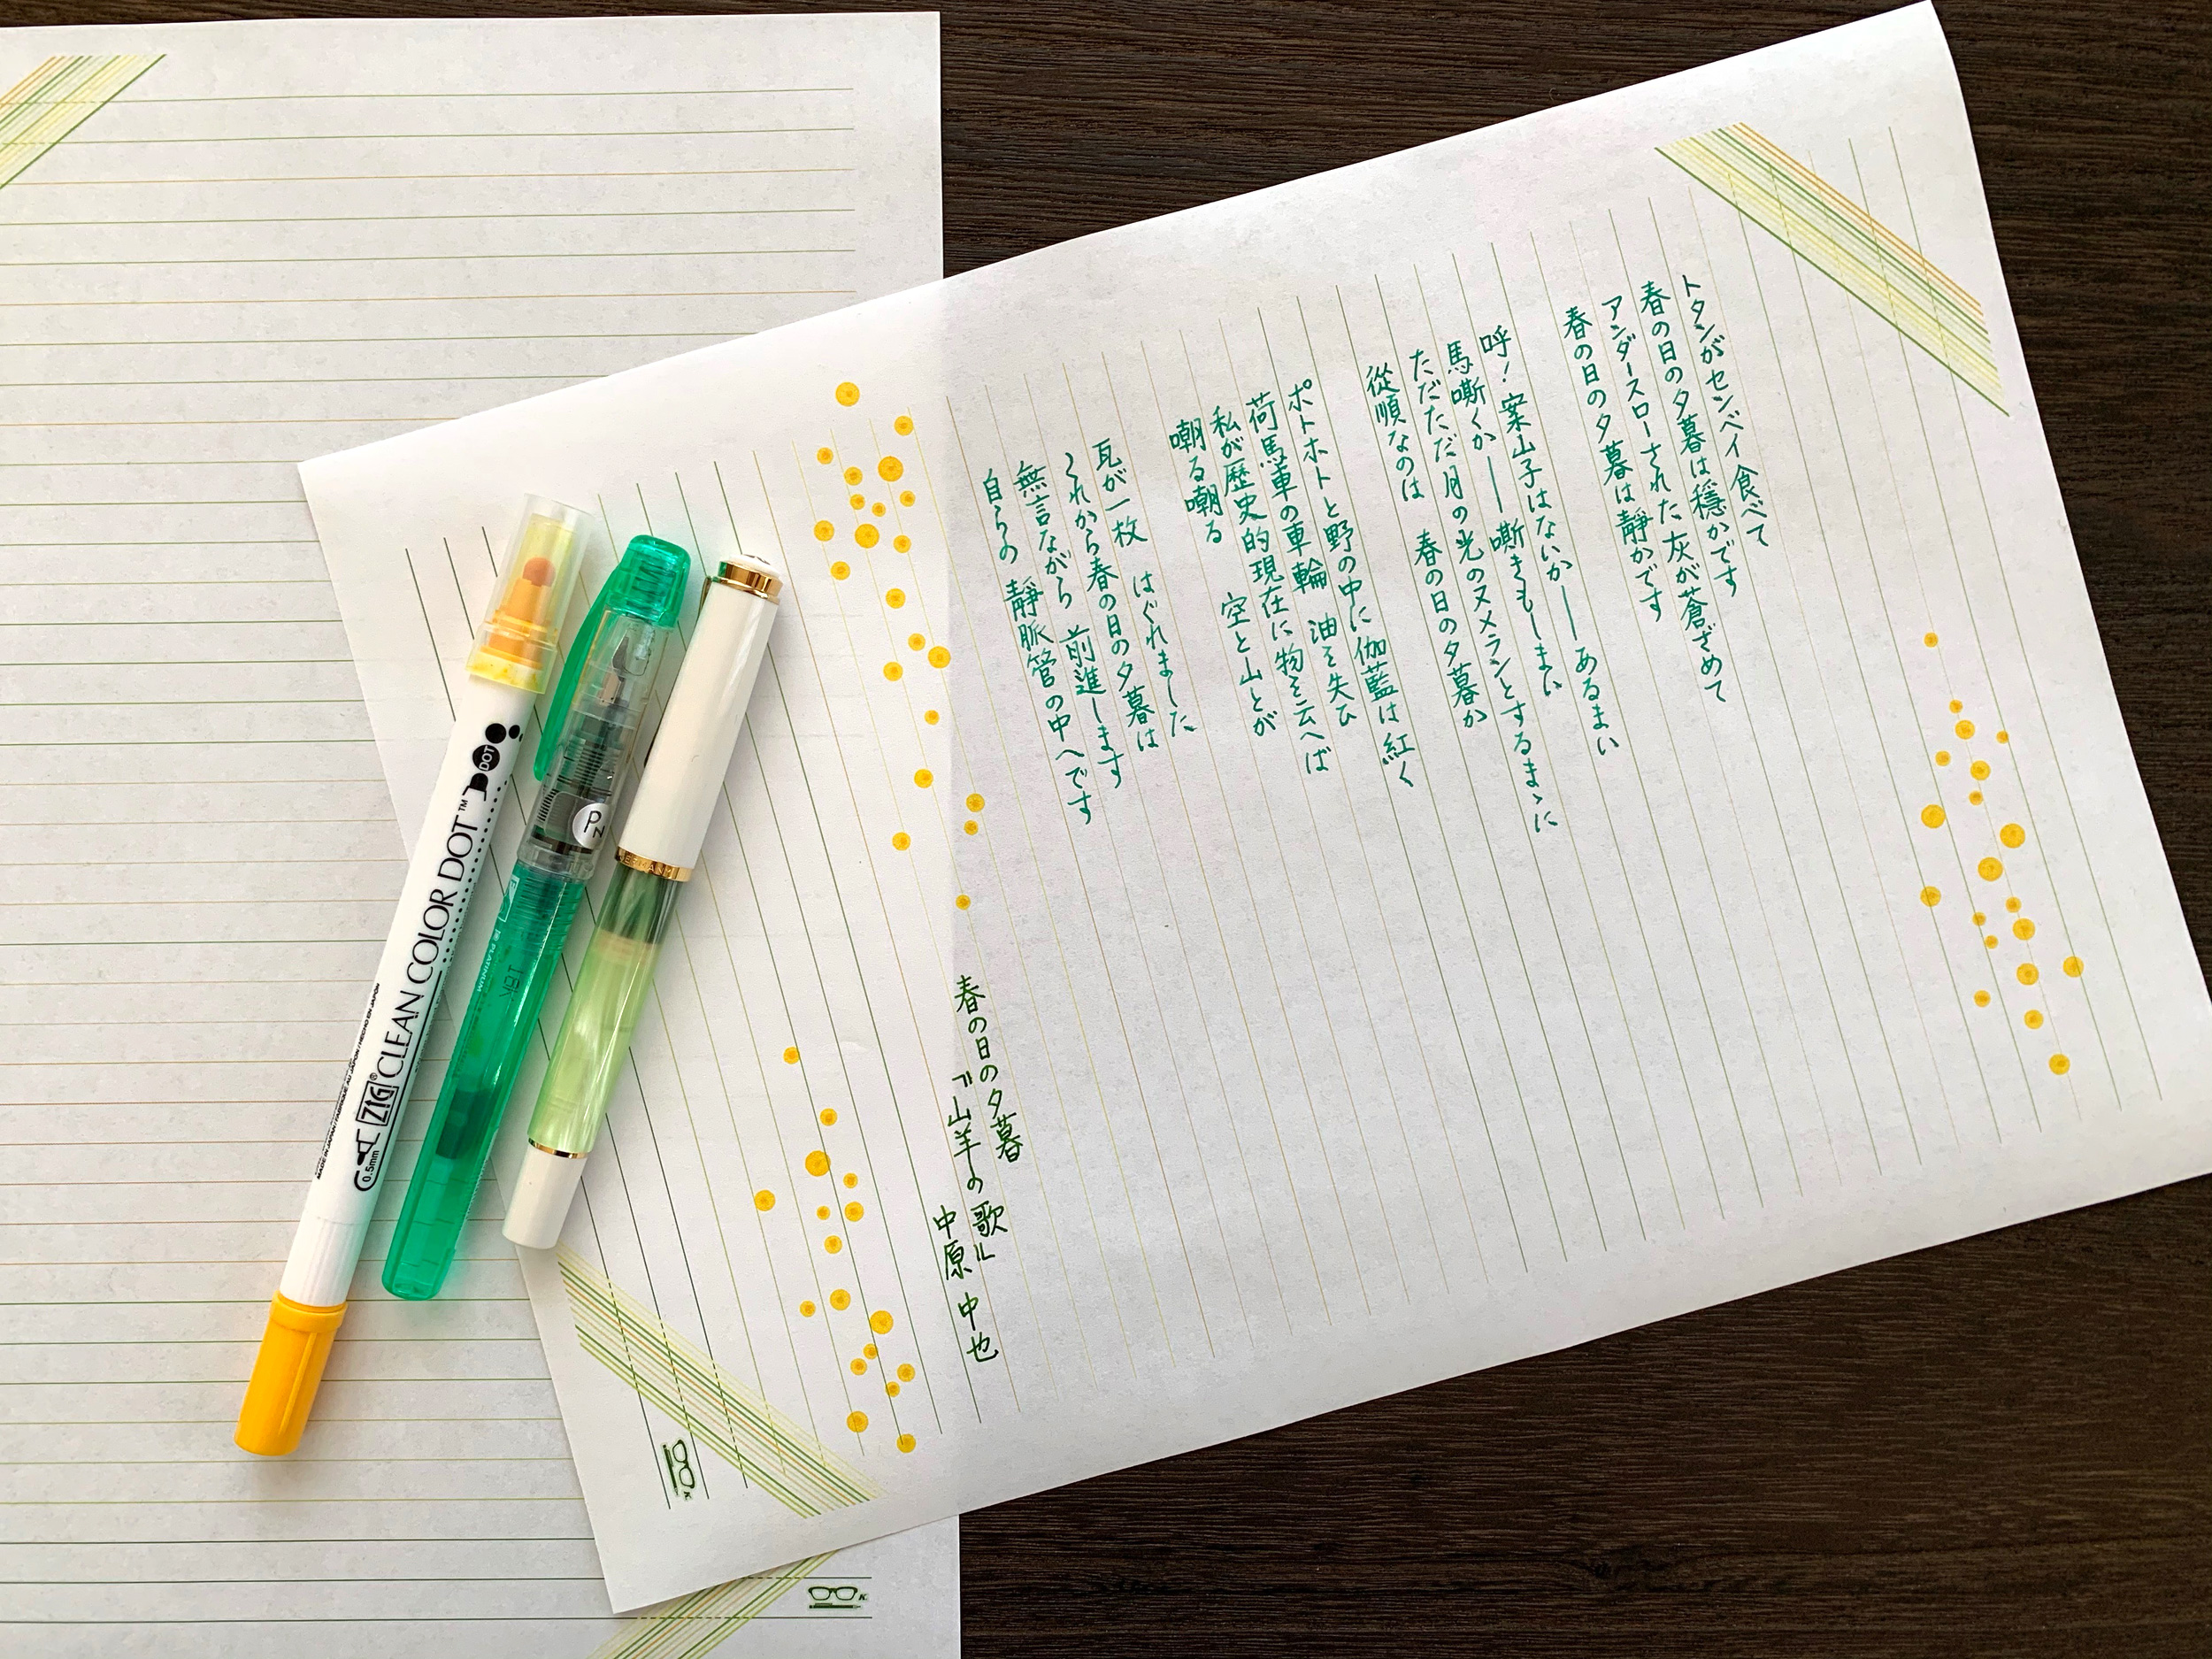 トタンがセンベイ食べて
春の日の夕暮は穏かです
アンダースローされた灰が蒼ざめて
春の日の夕暮は静かです
呼！案山子はないか――あるまい
馬嘶くか――嘶きもしまい
ただただ月の光のヌメランとするまゝに
従順なのは 春の日の夕暮か
ポトホトと野の中に伽藍は紅く
荷馬車の車輪 油を失ひ
私が歴史的現在に物を云へば
嘲る嘲る 空と山とが
瓦が一枚 はぐれました
これから春の日の夕暮は
無言ながら 前進します
自らの 静脈管の中へです
春の日の夕暮
『山羊の歌』
中原 中也
ZIG CLEAN COLOR DOT™
0.5mm
DOT
PN
PLATINUM